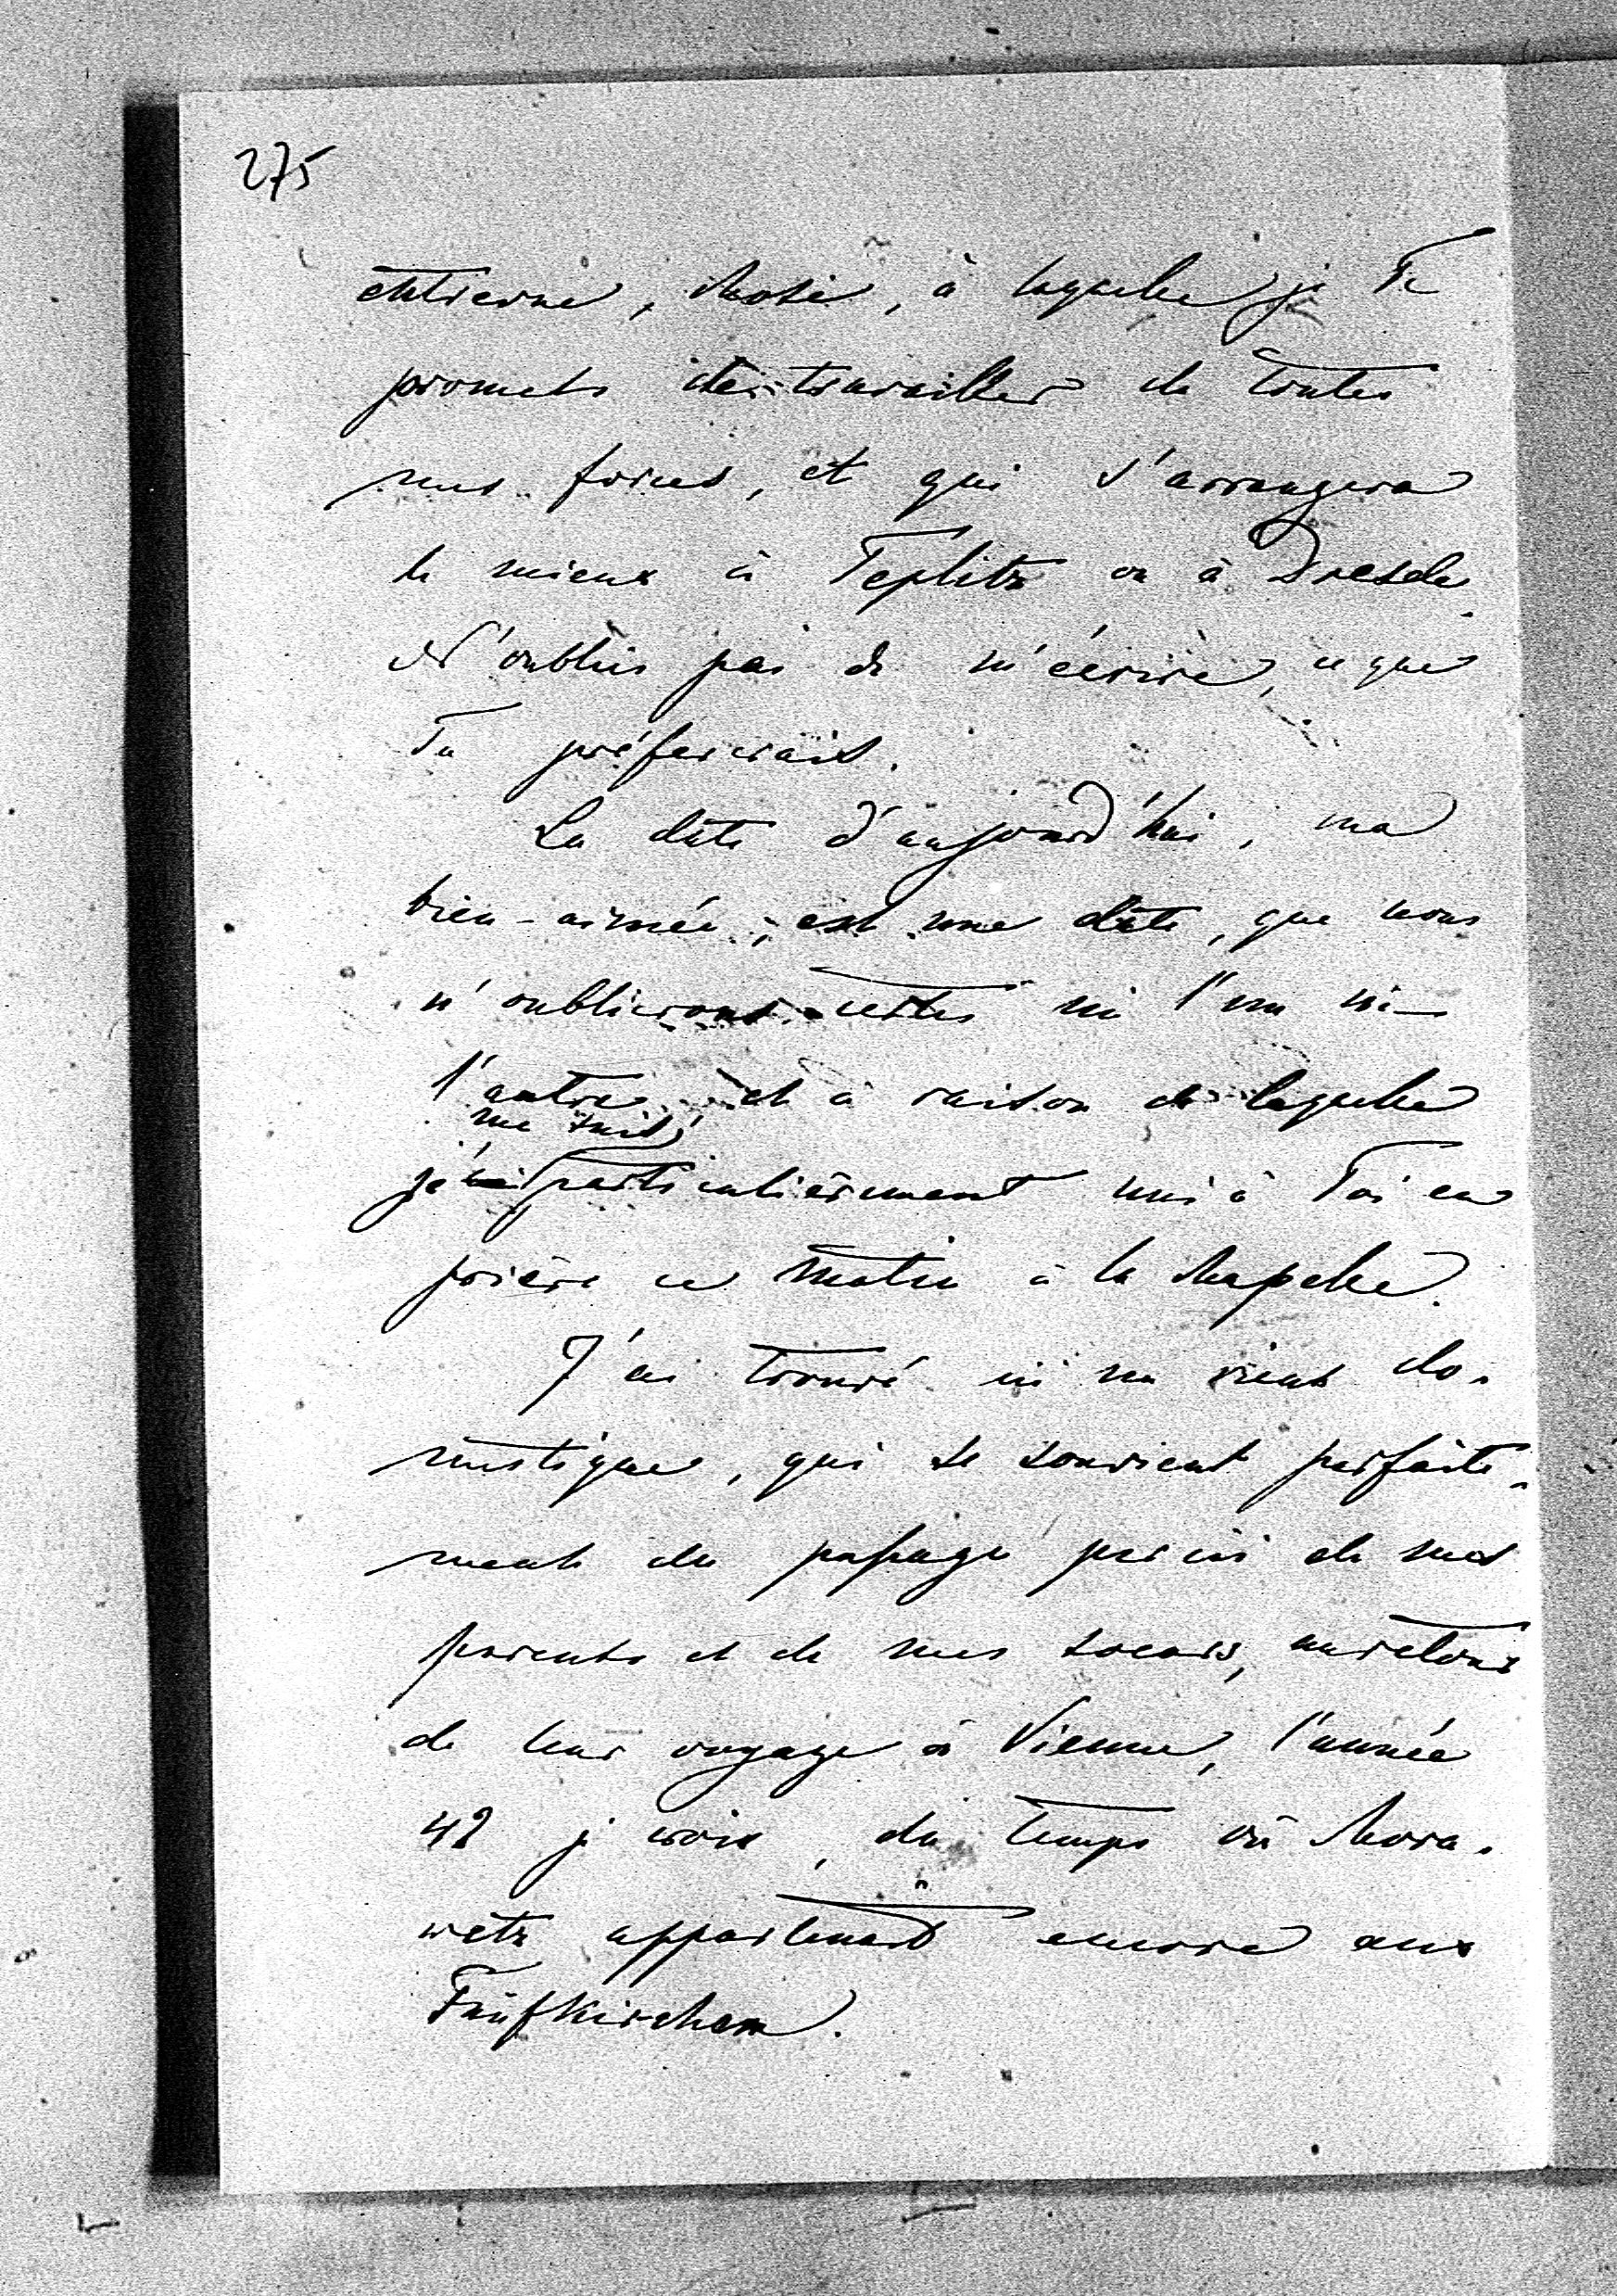 275
chtienne, chose, à laquelle je Te
promets de travailler de toutes
mes forces, et qui s'arrangera
le mieux à Teplitz ou à Dresde.
N'oublie pas de m'écrire, ce que
Tu préfererais.
La date d'aujourd'hui, ma
bien-aimée, est une date, que nous
n'oublierons certes ni l'un ni
l'autre, et à raison de laquelle
me suis
je particulièrement uni à Toi en
prière ce matin à la chapelle.
J'ai trouvé ici un vieux do-
mestique, qui se souvient parfaite-
ment du passage par ici de mes
parents et de mes soeurs, au retour
de leur voyage à Vienne, l'année
42 je crois, du temps où Chora-
wetz appartenait encore aux
Fünfkirchen.